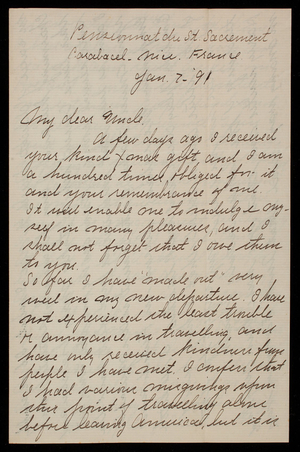 Pensionnat du St. Sacrement
Carabacel - Nice. France
Jan. 7 - '91
My dear Uncle.
A few days ago I received
your kind Xmas gift, and I am
a hundred times obliged for it
and your remembrance of me.
It will enable me to indulge my-
self in many pleasures, and I
shall not forget that I owe them
to you.
So far I have "made out" very
well in my new departure. I have
not experienced the least trouble
or annoyance in travelling, and
have only received kindness from
people I have met. I confess that
I had various misgivings upon
this point of travelling alone
before leaving America, but it is